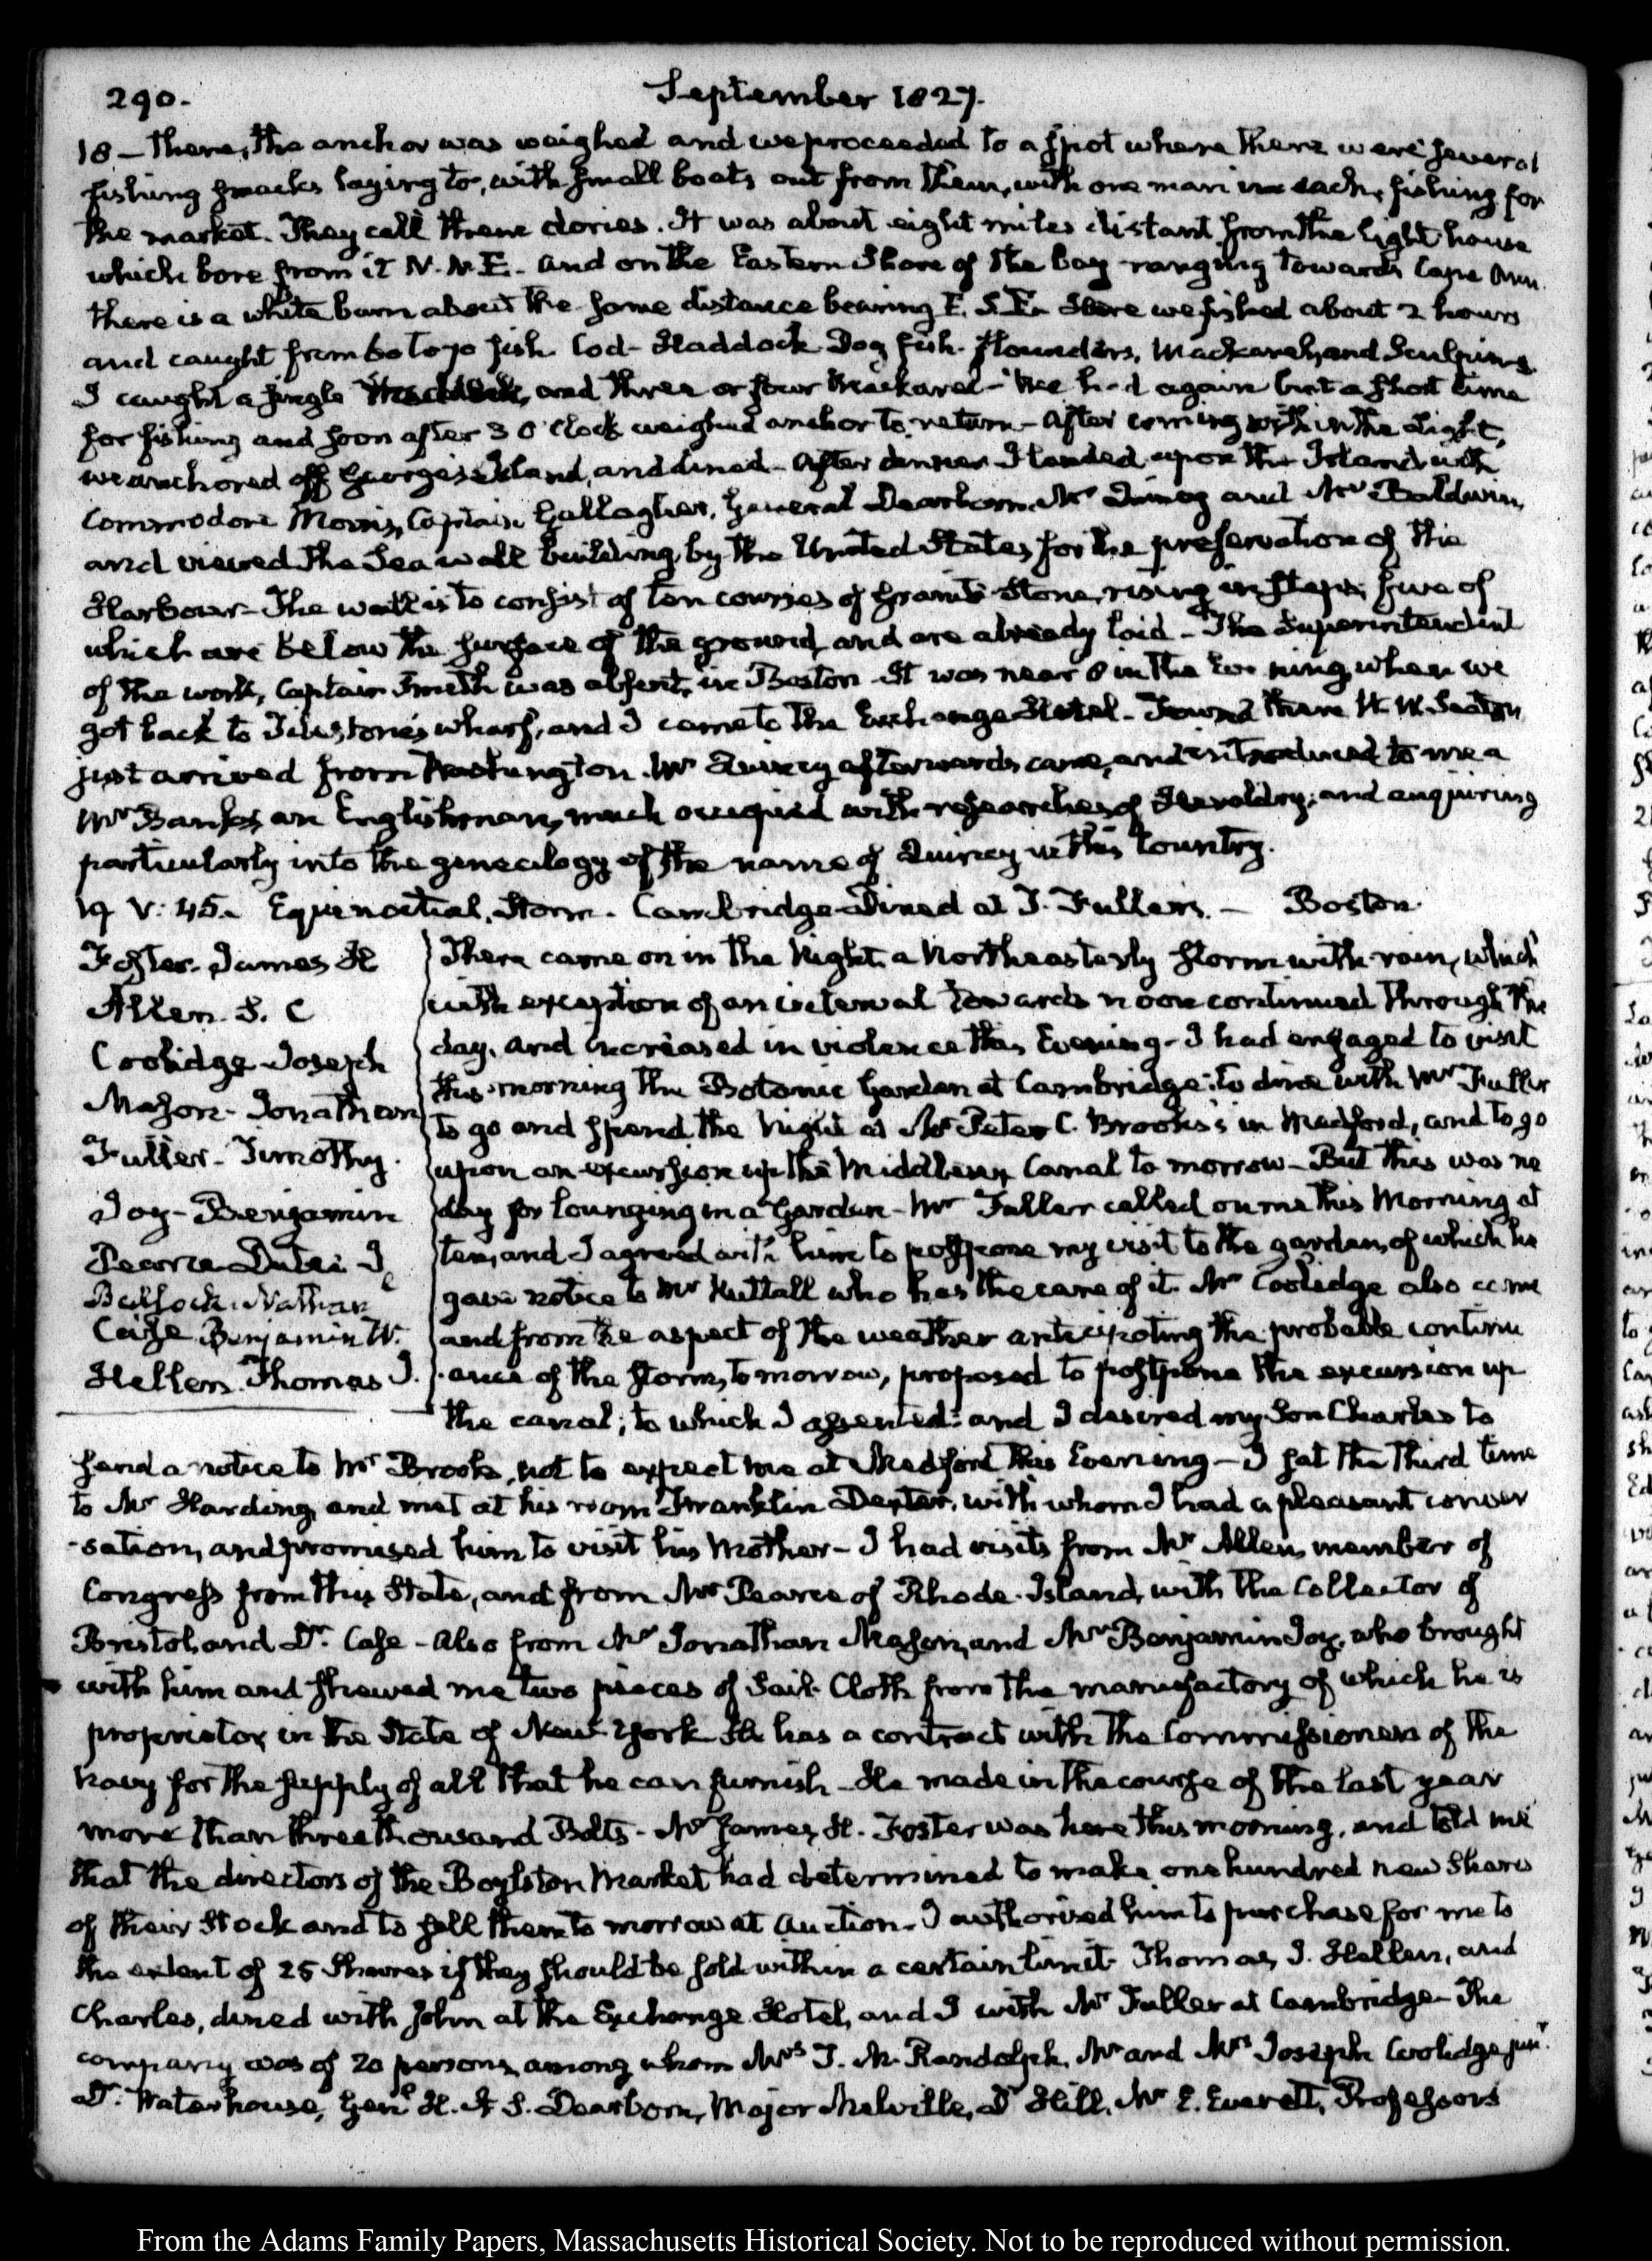 290.
September 1827.
18 — There, the anchor was weighed and we proceeded to a spot where there were several
fishing smacks laying to, with small boats out from them, with one man in each, fishing for
the market. They call them dories. It was about eight miles distant from the Light house
which bore from it N.N.E. and on the Eastern Shore of the bay ranging towards Cape Ann
there is a white barn about the same distance bearing E.S.E. Here we fished about 2 hours
and caught from 60 to 70 fish. Cod- Haddock Dog fish. Flounders, Mackarel, and Sculpins.
I caught a single Haddock, and three or four Mackarel - We had again but a short time
for fishing and soon after 3 O'Clock weighed anchor to return - After coming within the Light,
we anchored off George's Island, and dined - After dinner I landed upon the Island with
Commodore Morris, Captain Gallagher, General Dearborn, Mr Quincy and Mr Baldwin,
and viewed the Sea wall building by the United States for the preservation of the
Harbour - The wall is to consist of ten courses of Granite Stone, rising in steps; five of
which are below the surface of the ground, and are already laid - The Superintendent
of the work, Captain Smith was absent, in Boston - It was near 8 in the Evening when we
got back to Tileston's wharf, and I came to the Exchange Hotel - Found there W. W. Seaton
just arrived from Washington. Mr Quincy afterwards came, and introduced to me a
Mr Banks, an Englishman, much occupied with researches of Heraldry; and enquiring
particularly into the genealogy of the name of Quincy in this Country.
19 V: 45. Equinoctial Storm. Cambridge - Dined at T. Fuller's. — Boston.
Foster. James H
Allen. S. C
Coolidge Joseph
Mason - Jonathan
Fuller - Timothy.
Joy - Benjamin
Pearce Dutee J
Bullock. Nathan
Case Benjamin W.
Hellen. Thomas J.
There came on in the Night a Northeasterly storm with rain, which
with exception of an interval towards noon continued through the
day, and increased in violence this Evening - I had engaged to visit
this morning the Botanic Garden at Cambridge; to dine with Mr Fuller
to go and spend the Night at Mr Peter C. Brooks's in Medford, and to go
upon an excursion up the Middlesex Canal to morrow - But this was no
day for lounging in a Garden - Mr Fuller called on me this Morning at
ten, and I agreed with him to postpone my visit to the garden, of which he
gave notice to Mr Nuttall who has the care of it. Mr Coolidge also came
and from the aspect of the weather anticipating the probable continu
-ance of the storm, to morrow, proposed to postpone the excursion up
the canal; to which I assented: and I desired my Son Charles to
send a notice to Mr Brooks, not to expect me at Medford this Evening - I sat the third time
to Mr Harding, and met at his room Franklin Dexter, with whom I had a pleasant conver
-sation, and promised him to visit his Mother - I had visits from Mr Allen, member of
Congress from this State, and from Mr Pearce of Rhode-Island, with the Collector of
Bristol, and Dr. Case - Also from Mr Jonathan Mason, and Mr Benjamin Joy, who brought
with him and shewed me two pieces of Sail Cloth from the manufactory of which he is
proprietor, in the State of New-York He has a contract with the Commissioners of the
Navy for the supply of all that he can furnish - He made in the course of the last year
more than three thousand Bolts - Mr James H. Foster was here this morning, and told me
that the directors of the Boylston Market had determined to make one hundred new Shares
of their Stock and to sell them to morrow at Auction - I authorised him to purchase for me to
the extent of 25 Shares if they should be sold within a certain limit. Thomas J. Hellen, and
Charles, dined with John at the Exchange Hotel, and I with Mr Fuller at Cambridge - The
company was of 20 persons, among whom Mrs T. M. Randolph, Mr and Mrs Joseph Coolidge junr.
Dr. Waterhouse, Genl H. A S. Dearborn, Major Melville, Dr Hill, Mr E. Everett, Professors
From the Adams Family Papers, Massachusetts Historical Society. Not to be reproduced without permission.